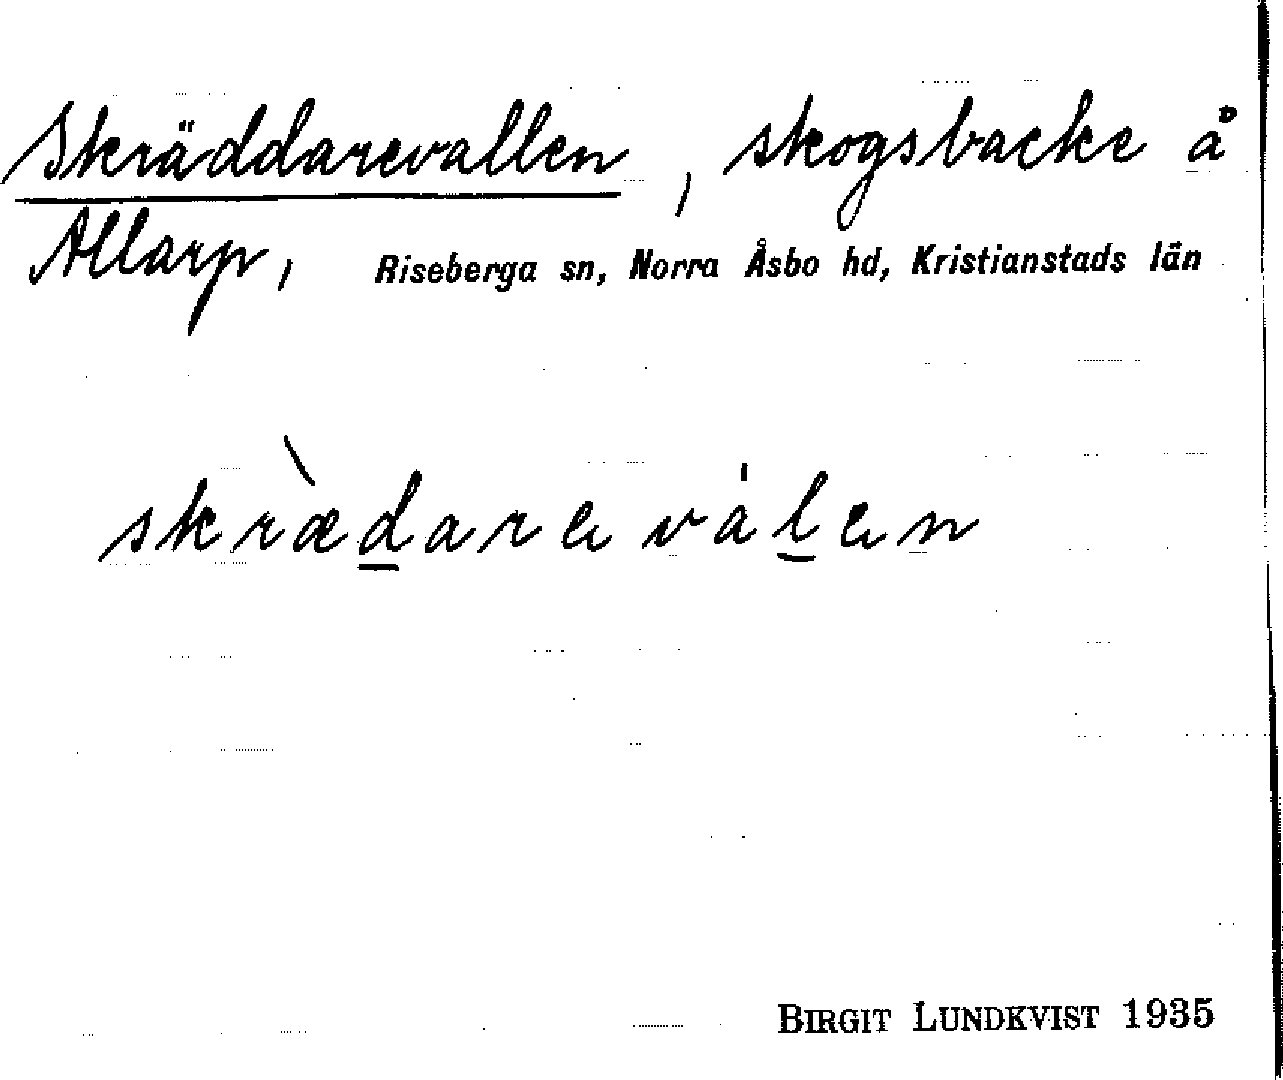 Skräddarevallen, skogsbacke å
Allarp, Riseberga sn, Norra Åsbo hd, Kristianstads län
skræ̀d̲ara vál̲an
BIRGIT LUNDKVIST 1935